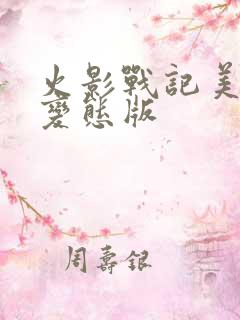 火影戰記美
變態版
周壽銀